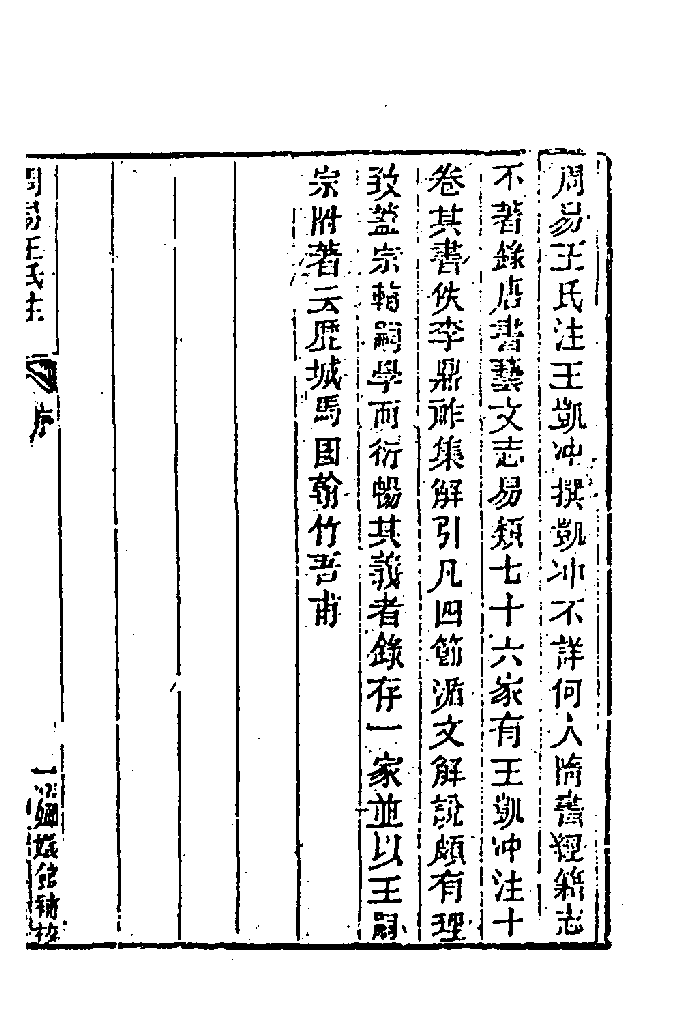 周易王氏注王凱冲撰凱冲不詳何人隋書經籍志
不著錄唐書藝文志易類七十六家有王凱冲注十
卷其書佚李鼎祚集解引凡四節循文解說頗有理
致蓋宗輔嗣學而衍暢其義者錄存一家並以王嗣
宗附著云歷城馬國翰竹吾甫
周易王氏注
序
一
嬛館補校